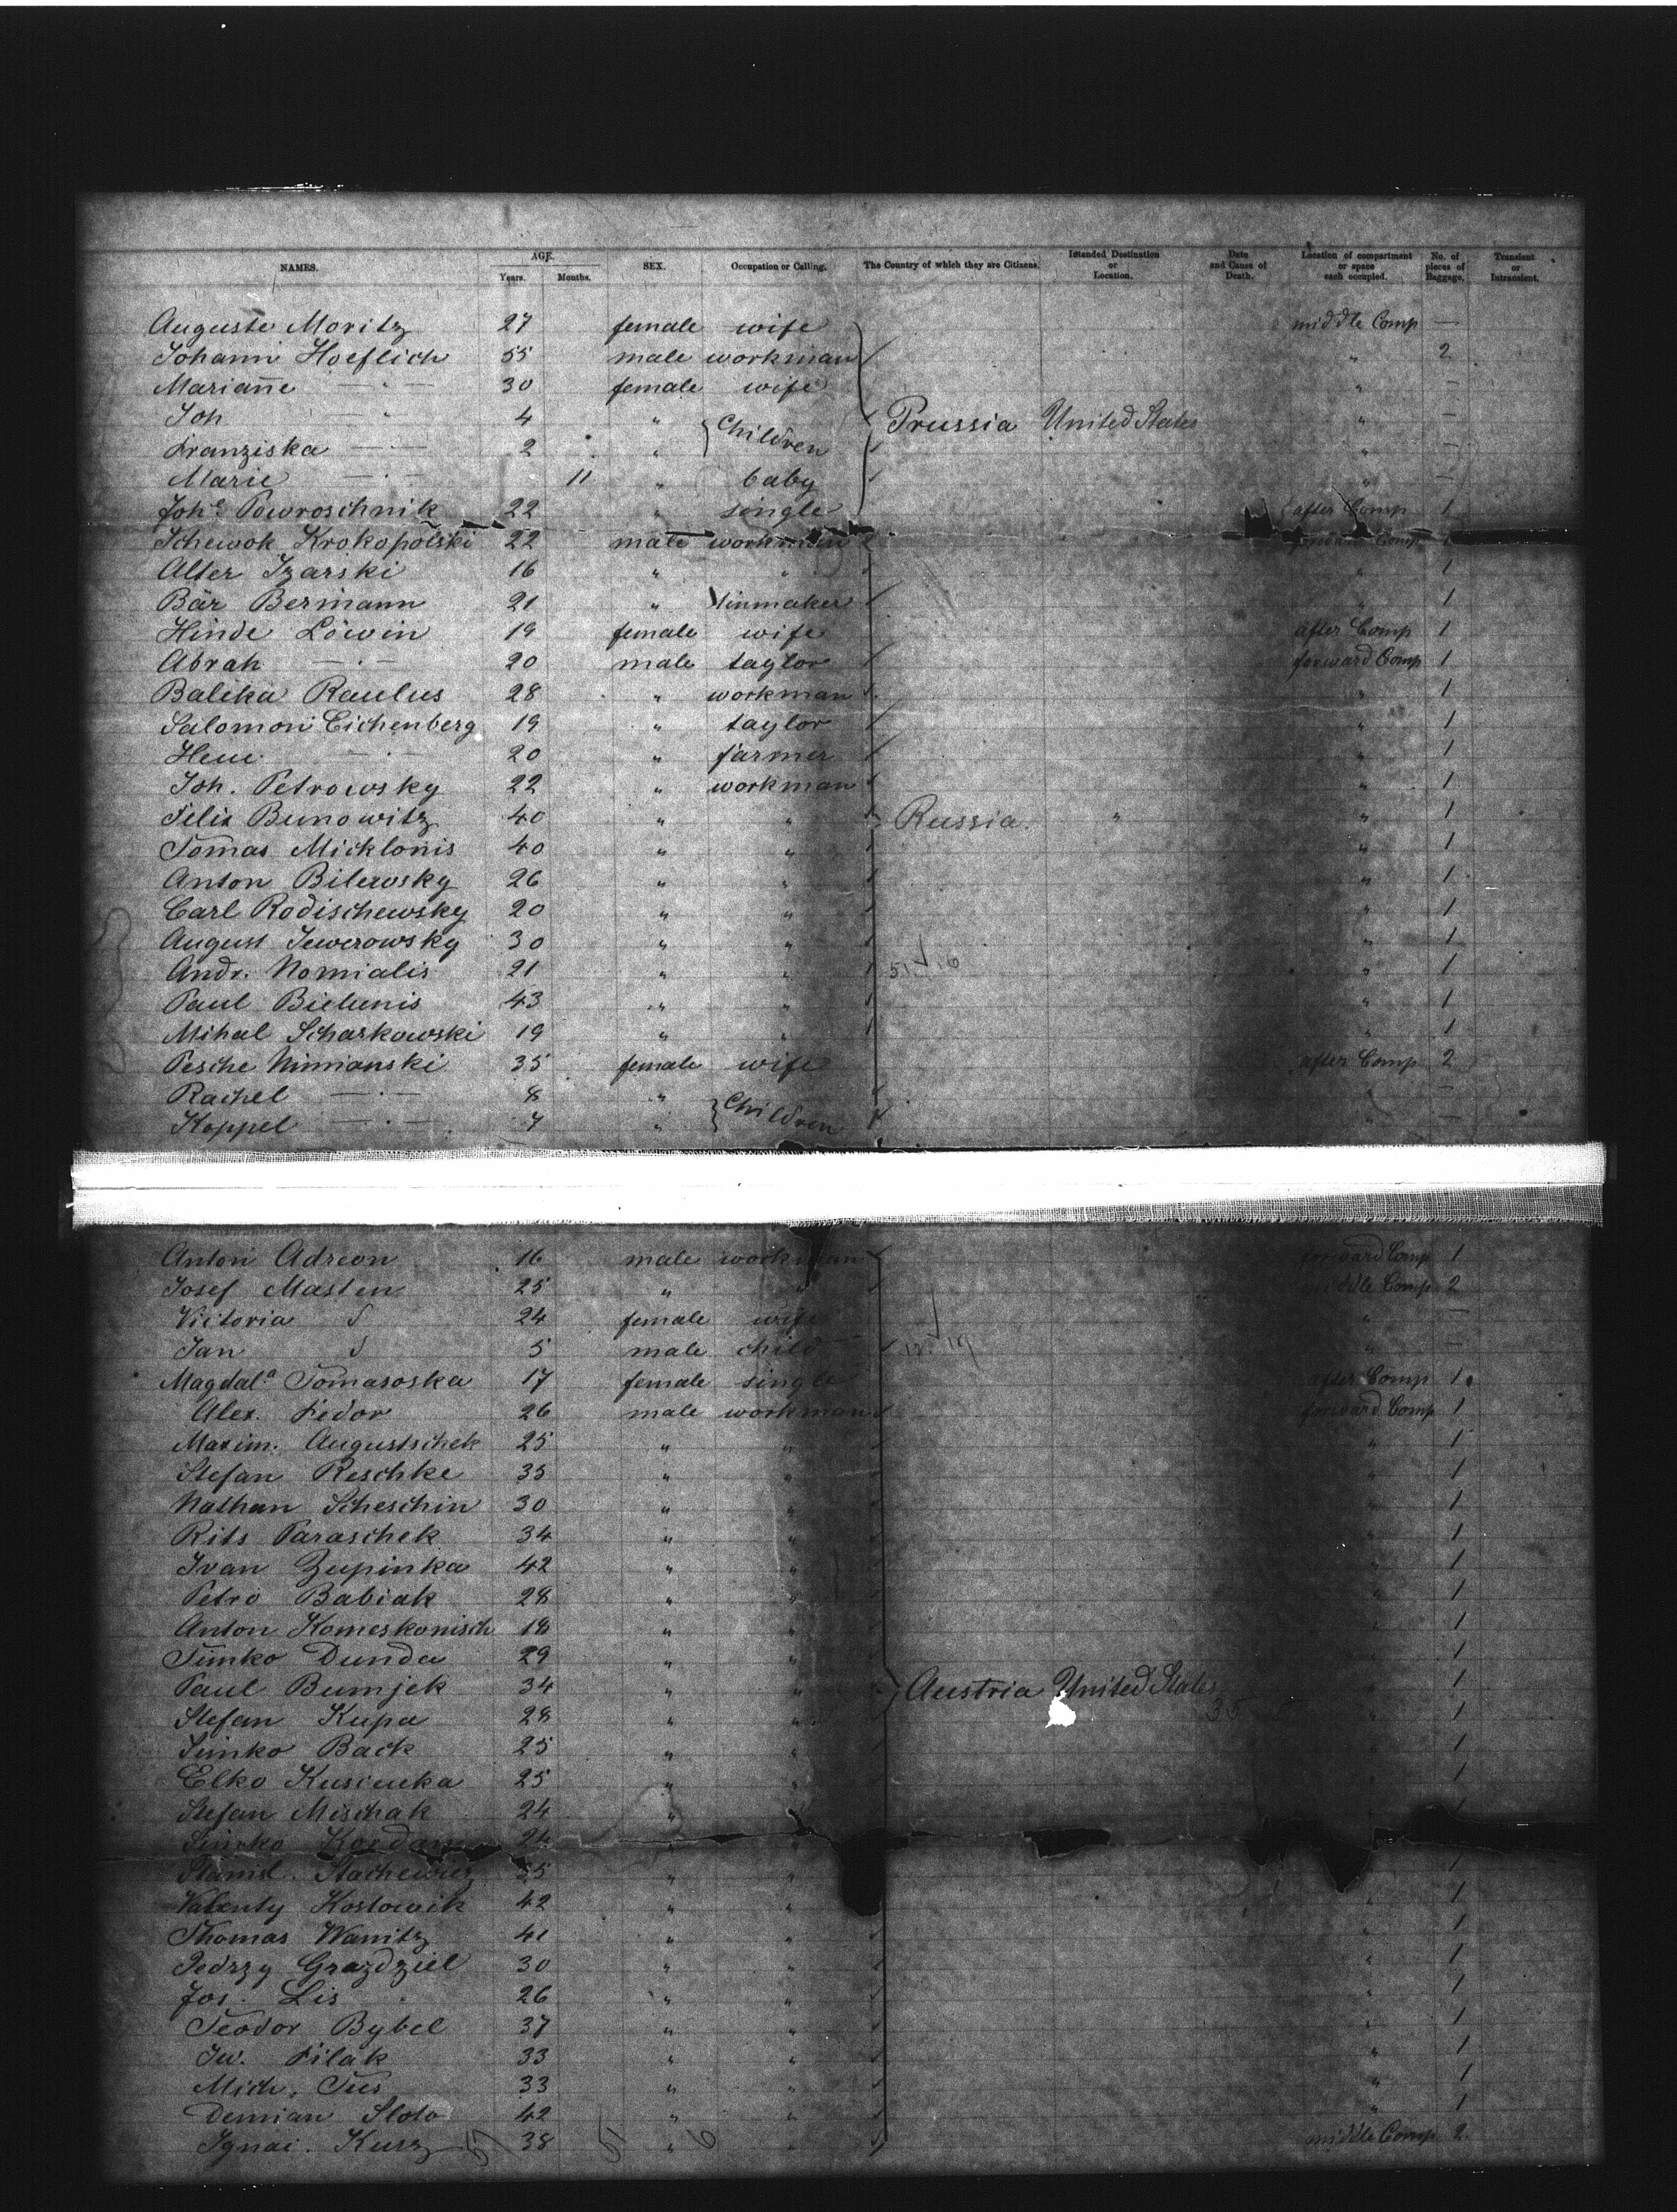 NAMES. AGE. Years. Months. SEX. Occupation or Calling. The Country of which they are Citizens. Intended Destination or Location. Date and Cause of Death. Location of compartment or space each occupied. No. of pieces of Baggage. Transient or Intransient.
Auguste Moritz 27 female wife middle Comp —
Johann Hoeflich 55 male workman " 2
Mariañe — " — 30 female wife " —
Joh — " 4 " Children Prussia United States " —
Franziska — " — 2 " " —
Marie — " — 11 " baby " —
Joh. Powroschnik 22 " single after Comp 1
Schewok Krokopolski 22 male workman forward Comp 1
Alter Izarski 16 " " " 1
Bär Bermann 21 " tinmaker " 1
Hinde Löwin 19 female wife after Comp 1
Abrah — " — 20 male taylor forward Comp 1
Balika Raulus 28 " workman " 1
Salomon Eichenberg 19 " taylor " 1
20 " farmer " 1
Joh. Petrowsky 22 " workman " 1
Felix Bunowitz 40 " " Russia. " " 1
Tomas Micklonis 40 " " " 1
Anton Bilewsky 26 " " " 1
Carl Rodischewsky 20 " " " 1
August Jewerowsky 30 " " " 1
Andr. Nomialis 21 " " " 1
Paul Bielunis 43 " " " 1
Mihal Scharkowski 19 " " " 1
Pesche Nimianski 35 female wife after Comp 2
Rachel — " — 8 " Children " —
Koppel — " — 7 " " —
Anton Adreon 16 male workman forward Comp 1
Josef Masten 25 " " middle Comp 2
Victoria 24 female wife " —
Jan 5 male child " —
Magdal.ª Tomasoska 17 female single after Comp 1
Alex. Fedor 26 male workman forward Comp 1
Maxim. Augustschek 25 " " " 1
Stefan Reschke 35 " " " 1
Nathan Scheschin 30 " " " 1
Rits Paraschek 34 " " " 1
Ivan Zupinka 42 " " " 1
Petro Babiak 28 " " " 1
Anton Komeskonisch 18 " " " 1
Timko Dunda 29 " " " 1
Paul Bumjek 34 " " Austria United States " 1
Stefan Kupa 28 " " " 1
Simko Back 25 " " " 1
Elko Kusienka 25 " " " 1
Stefan Mischak 24 " " 1
Simko 24 " "
Stanisl. Stachewicz 35 " " 1
Valenty Koslowik 42 " " " 1
Thomas Wanitz 41 " " " 1
Jedrzy Grazdziel 30 " " " 1
Jos. Lis 26 " " " 1
Teodor Bybel 37 " " " 1
Iw. Filak 33 " " " 1
Mich. Tus 33 " " " 1
Demian Sloto 42 " " " 1
Ignai. Kurz 38 " " middle Comp 2